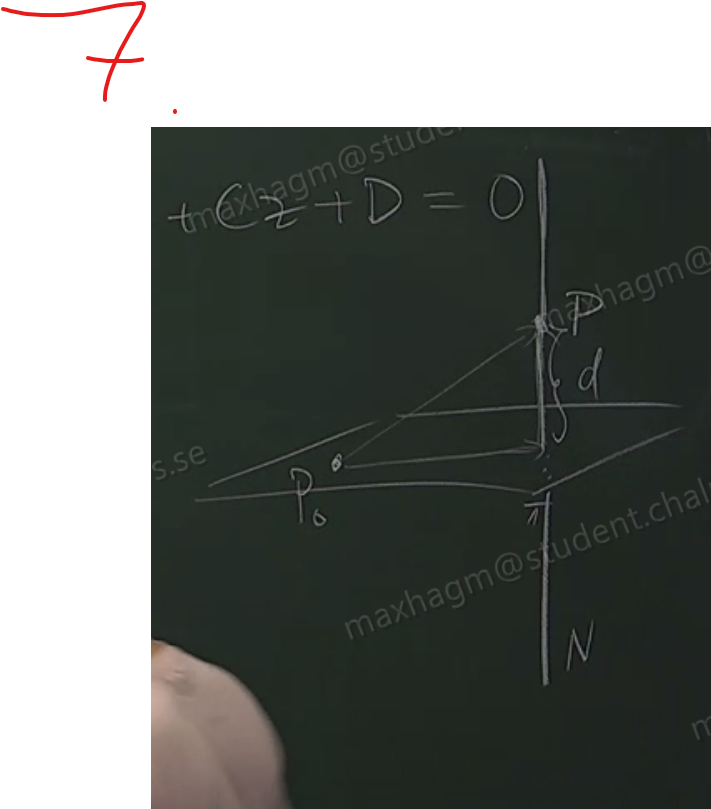 7.
+ Cz + D = 0
P
d
P₀
π
N
maxhagm@student
maxhagm@
s.se
maxhagm@student.chal
m